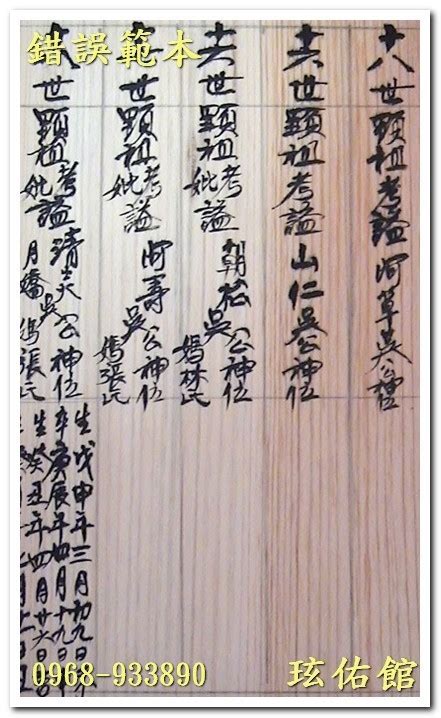 錯誤範本
十八世顯祖考諡阿草吳公神位
十六世顯祖考諡山仁吳公神位
十六世顯祖考妣諡朝松吳公神位
媽林氏
世顯祖考妣諡阿壽吳公神位
媽張氏
八世顯祖考妣諡清炎公神位
月嬌媽張氏
生戊申年三月初九日
卒庚辰年四月十九日
生癸丑年四月廿六日
0968-933890
玹佑館